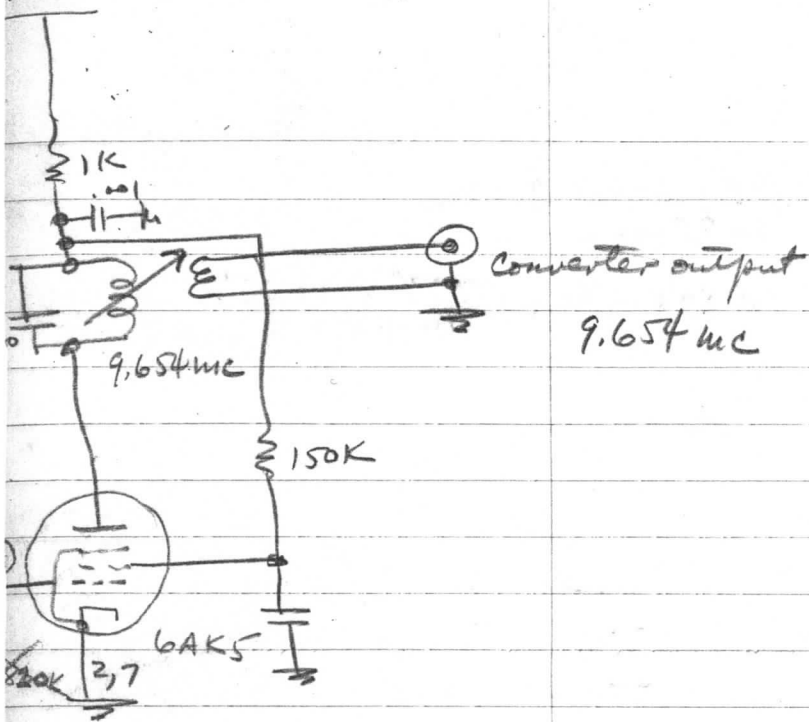 1K
.001
converter output
9.654 mc
9.654 mc
150K
6AK5
820K
2,7